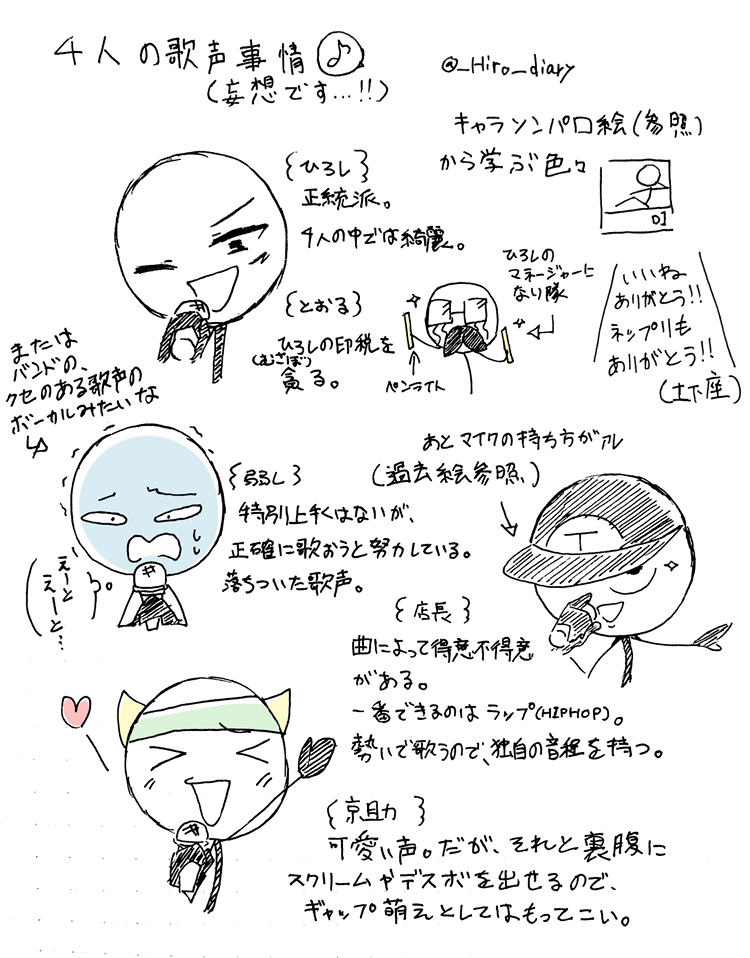 4人の歌声事情♪
(妄想です…!!)
@_Hiro_diary
キャラソンパロ絵(参照)
から学ぶ色々
DJ
{ひろし}
正統派。
4人の中では綺麗。
{とおる}
ひろしの印税を
(むさぼり)
貪る。
ペンライト
ひろしの
マネージャーに
なり隊
いいね
ありがとう!!
ネップリも
ありがとう!!
(土下座)
または
バンドの、
クセのある歌声の
ボーカルみたいな
{弱し}
特別上手くはないが、
正確に歌おうと努力している。
落ちついた歌声。
えーと
えーと…
あとマイクの持ち方がアレ
(過去絵参照)
T
{店長}
曲によって得意不得意
がある。
一番できるのはラップ(HIPHOP)。
勢いで歌うので、独自の音程を持つ。
{京助}
可愛い声。だが、それと裏腹に
スクリームやデスボを出せるので、
ギャップ萌えとしてはもってこい。